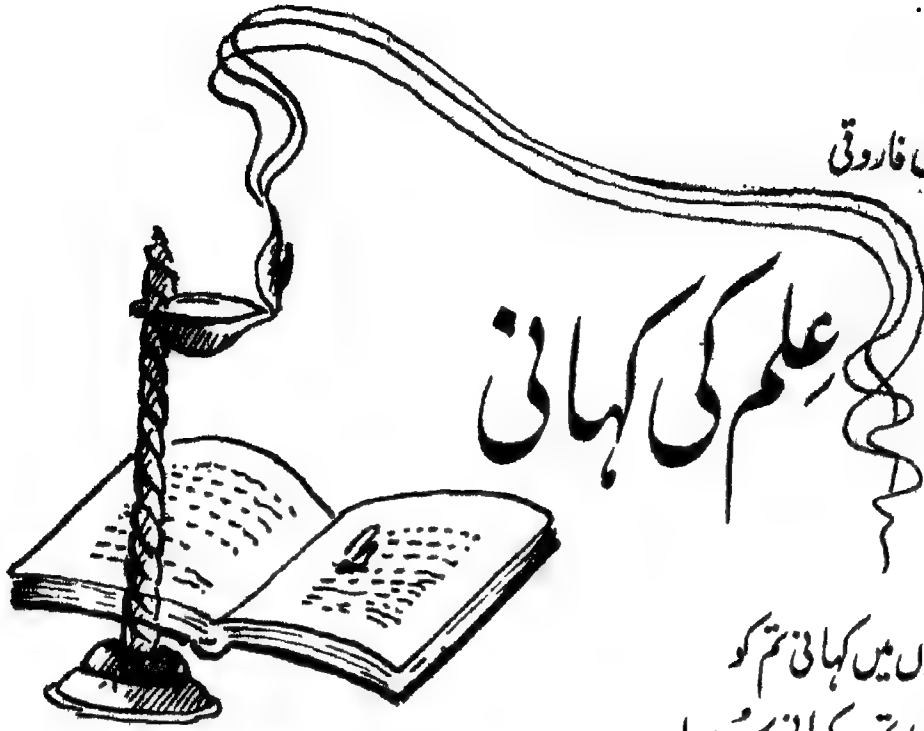 فاروقی
عِلم کی کہانی
میں کہانی تم کو